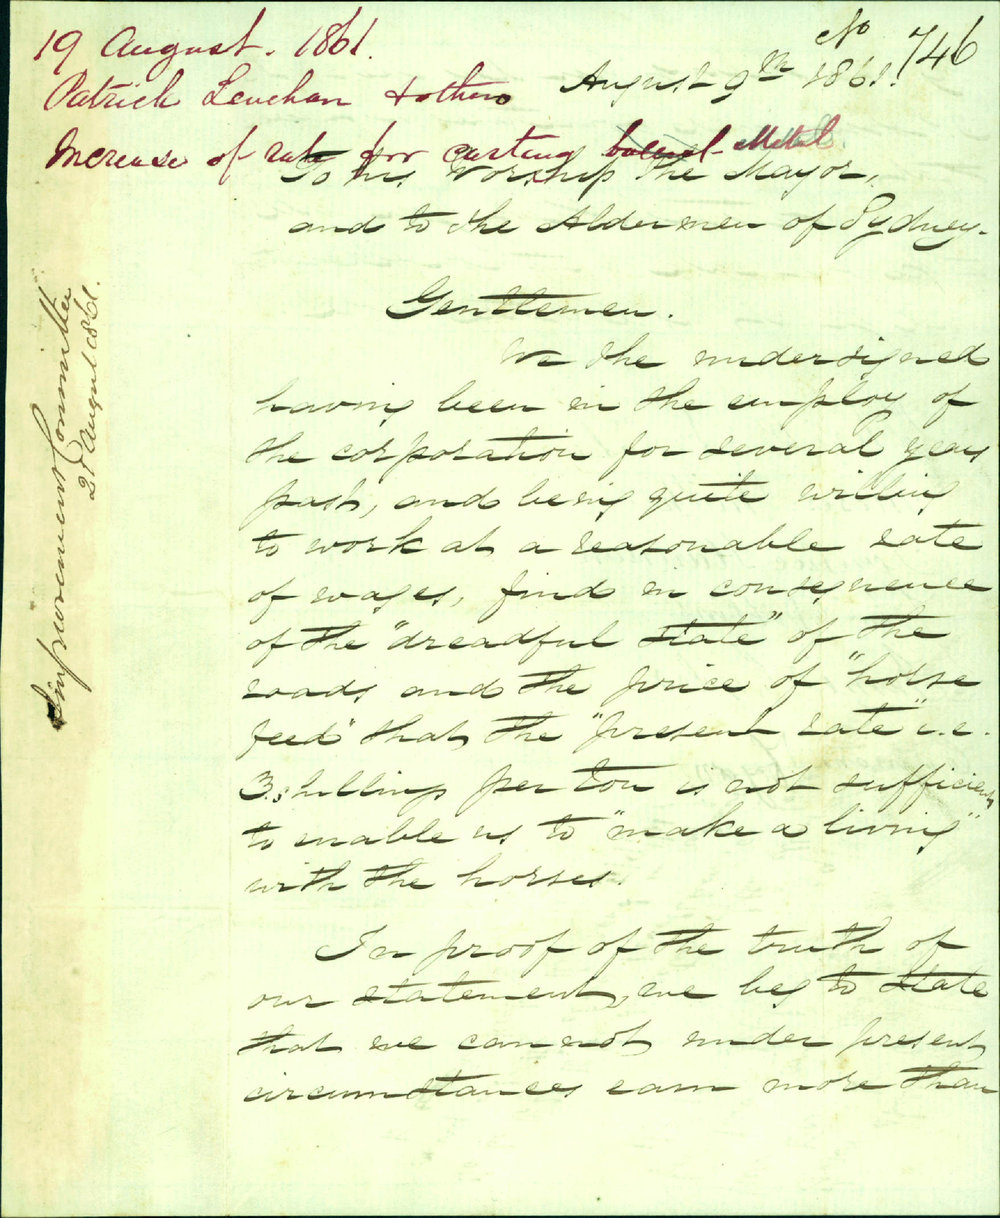 19 August. 1861.
Patrick Lenehan & others
Increase of rate for carting Metal
No 746
August 9th 1861.
To his Worship the Mayor,
and to the Aldermen of Sydney.
Gentlemen.
We the undersigned
having been in the employ of
the corporation for several years
past, and being quite willing
to work at a reasonable rate
of wages, find in consequence
of the "dreadful state" of the
roads and the price of "horse
feed" that the "present rate" i.e.
3. shillings per ton is not sufficient
to enable us to "make a living"
with the horses.
In proof of the truth of
our statement, we beg to state
that we cannot under present
circumstances earn more than
Improvement Committee
21 August 1861.